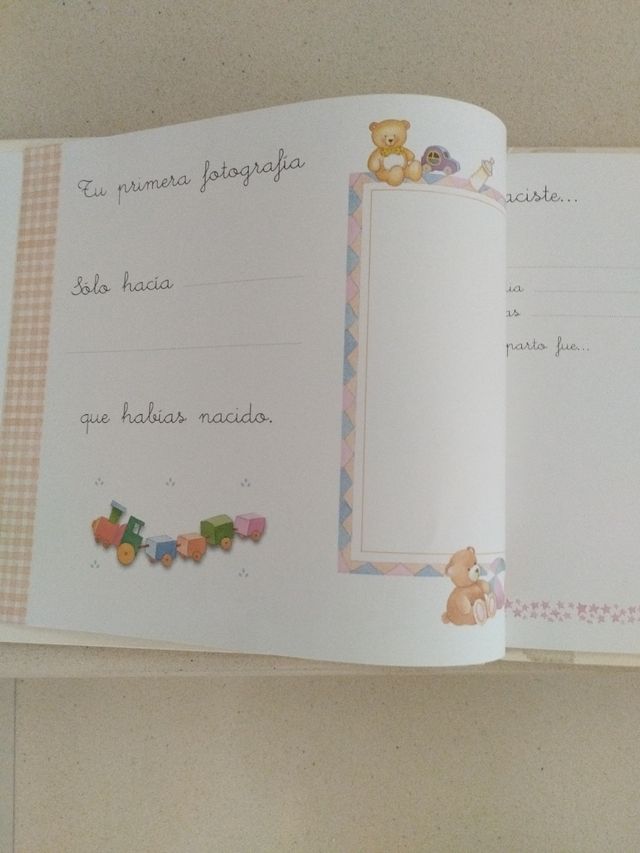 Tu primera fotografía
Sólo hacía
que habías nacido.
aciste...
ia
as
parto fue...